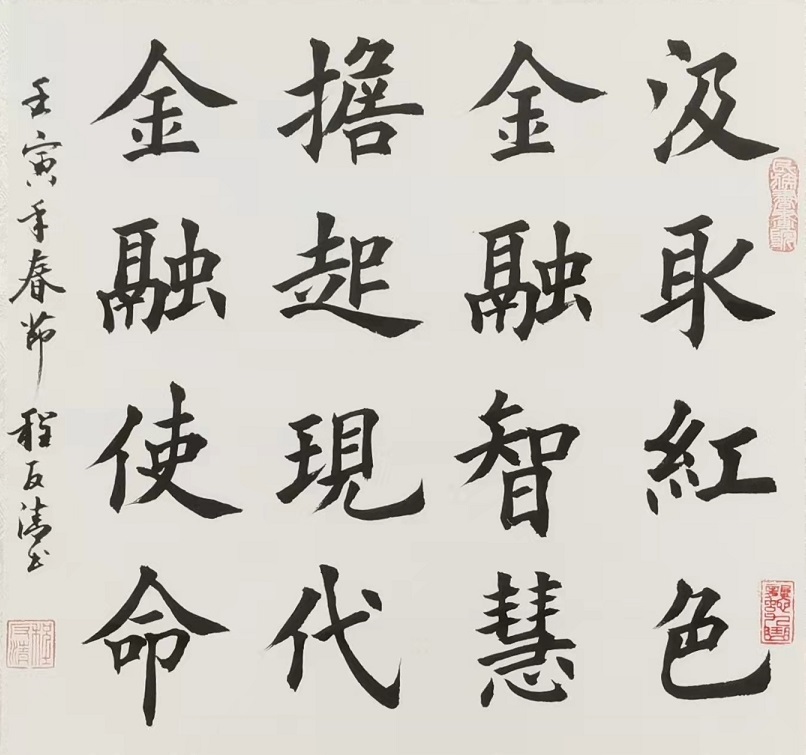 汲取紅色
金融智慧
擔起現代
金融使命
壬寅年春節 程友清书